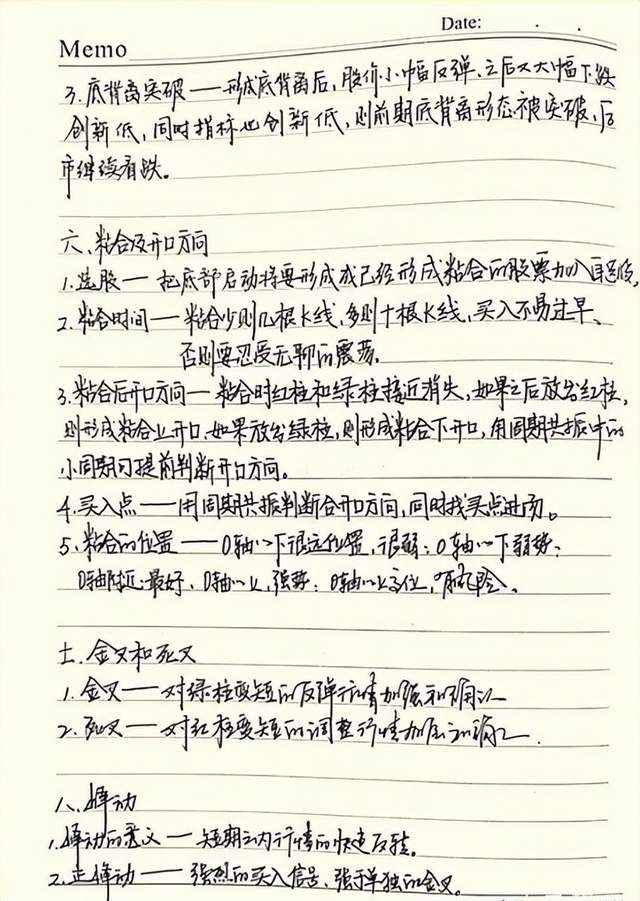 Date: . .
Memo
3. 底背离突破——形成底背离后,股价小幅反弹、之后又大幅下跌
创新低,同时指标也创新低,则前期底背离形态被突破,后
市继续看跌。
六、粘合及开口方向
1. 选股——把底部启动将要形成或已经形成粘合的股票加入自选股,
2. 粘合时间——粘合少则几根K线,多则十根K线,买入不易过早、
否则要忍受无聊的震荡。
3. 粘合后开口方向——粘合时红柱和绿柱接近消失,如果之后放出红柱,
则形成粘合上开口,如果放出绿柱,则形成粘合下开口,用周期共振中的
小周期可提前判断开口方向。
4. 买入点——用周期共振判断合开口方向,同时找买点进场。
5. 粘合的位置——0轴以下很远位置,很弱;0轴以下弱势;
0轴附近:最好、0轴以上,强势;0轴以上高位,有风险、
七、金叉和死叉
1. 金叉——对绿柱变短的反弹行情加强和确认
2. 死叉——对红柱变短的调整行情加强和确认
八、峰动
1. 峰动的意义——短期之内行情的快速反转。
2. 主峰动——强烈的买入信号、强于单独的金叉。